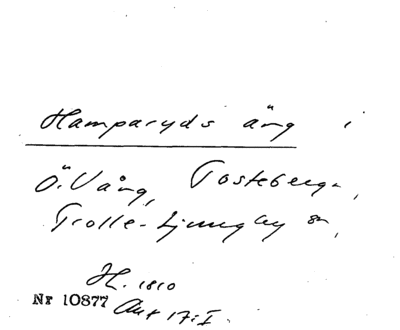 Hamparyds äng i
Ö. Vång, Tosteberga,
Trolle-Ljungby sn,
H. 1810
Nr 10877 Akt 17:I.